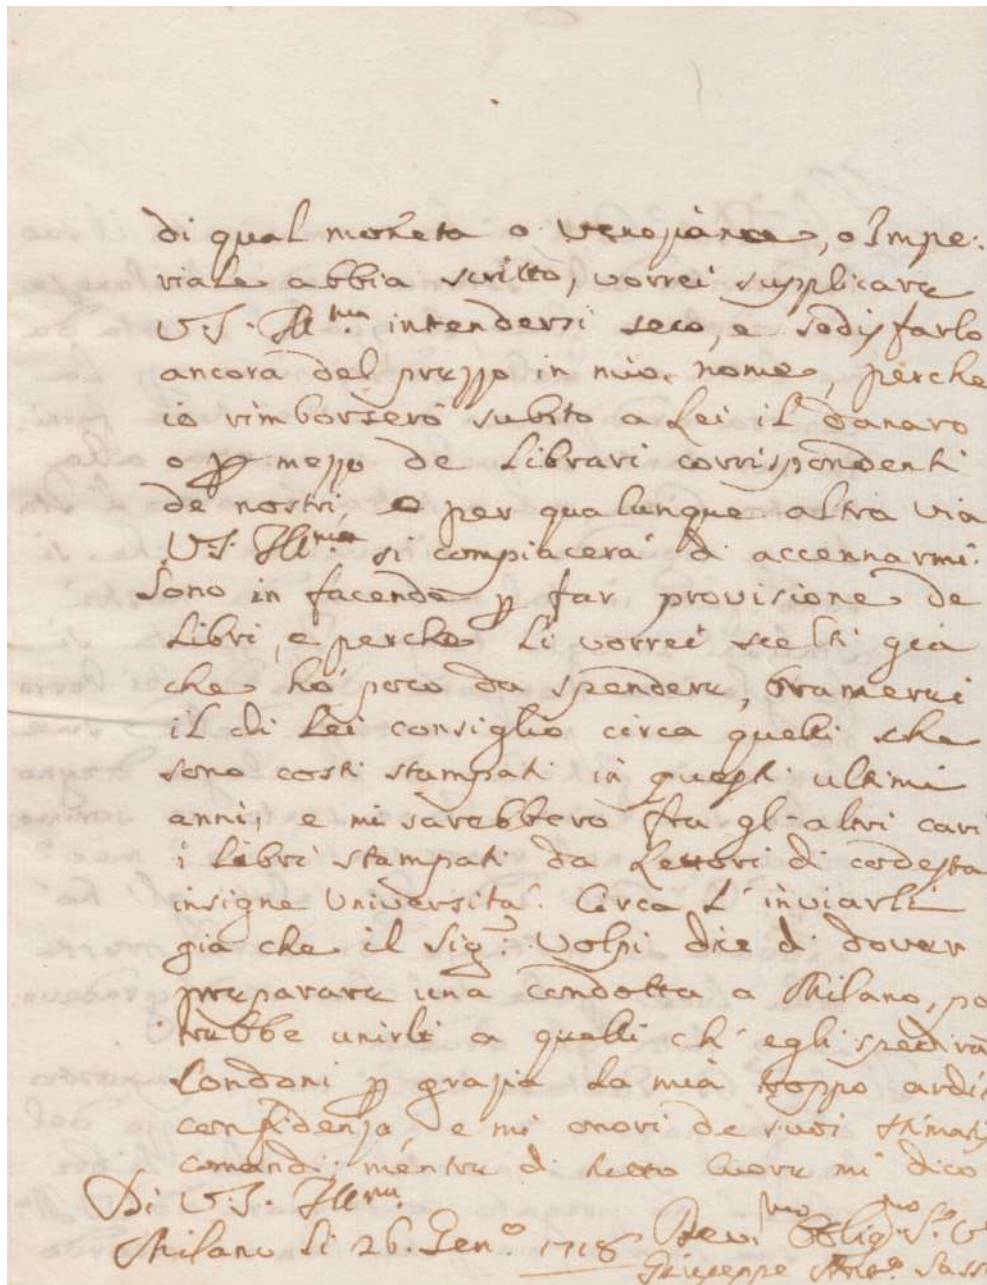 di qual moneta o Veneziana, o Impe:
riale abbia scritto, vorrei supplicare
V.S. Ill.ma intendersi seco, e sodisfarlo
ancora del prezzo in mio nome, perche
io rimborserò subito a Lei il danaro
o p mezzo de Librari corrispondenti
de nostri, o per qualunque altra via
V.S. Ill.ma si compiacerà di accennarmi.
Sono in facende p far provisione de
Libri, e perche li vorrei scelti già
che hò poco da spendere, bramerei
il di Lei consiglio circa quelli che
sono costì stampati in questi ultimi
anni, e mi sarebbero fra gl'altri cari
i Libri stampati da Lettori di codesta
insigne Università. Circa l'inviarli
già che il Sig.r Volpi dice di dover
preparare una condotta a Milano, po
trebbe unirli a quelli ch'egli spedirà
Condoni p grazia la mia troppo ardit
confidenza, e mi onori de suoi stimati
comandi, mentre di tutto Cuore mi dico
Di V.S. Ill.ma
Milano li 26. Gen.o 1718 Dev.mo Oblig.mo S.e V
Giuseppe Ant.o Sassi